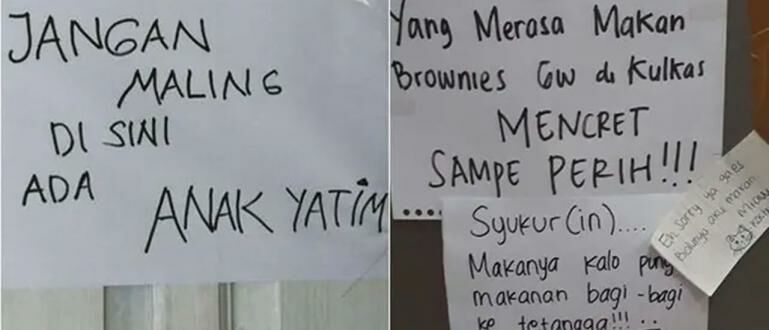 JANGAN
MALING
DI SINI
ADA
ANAK YATIM
Yang Merasa Makan
Brownies Gw di Kulkas
MENCRET
SAMPE PERIH!!!
Syukur(in)....
Makanya kalo
makanan bagi-bagi
ke tetangga!!! ..
Eh sorry ya gaes
aku makan